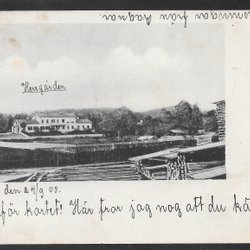 från Ragnar.
Herrgården
den 24/9 09.
för kortet! Här tror jag nog att du kä